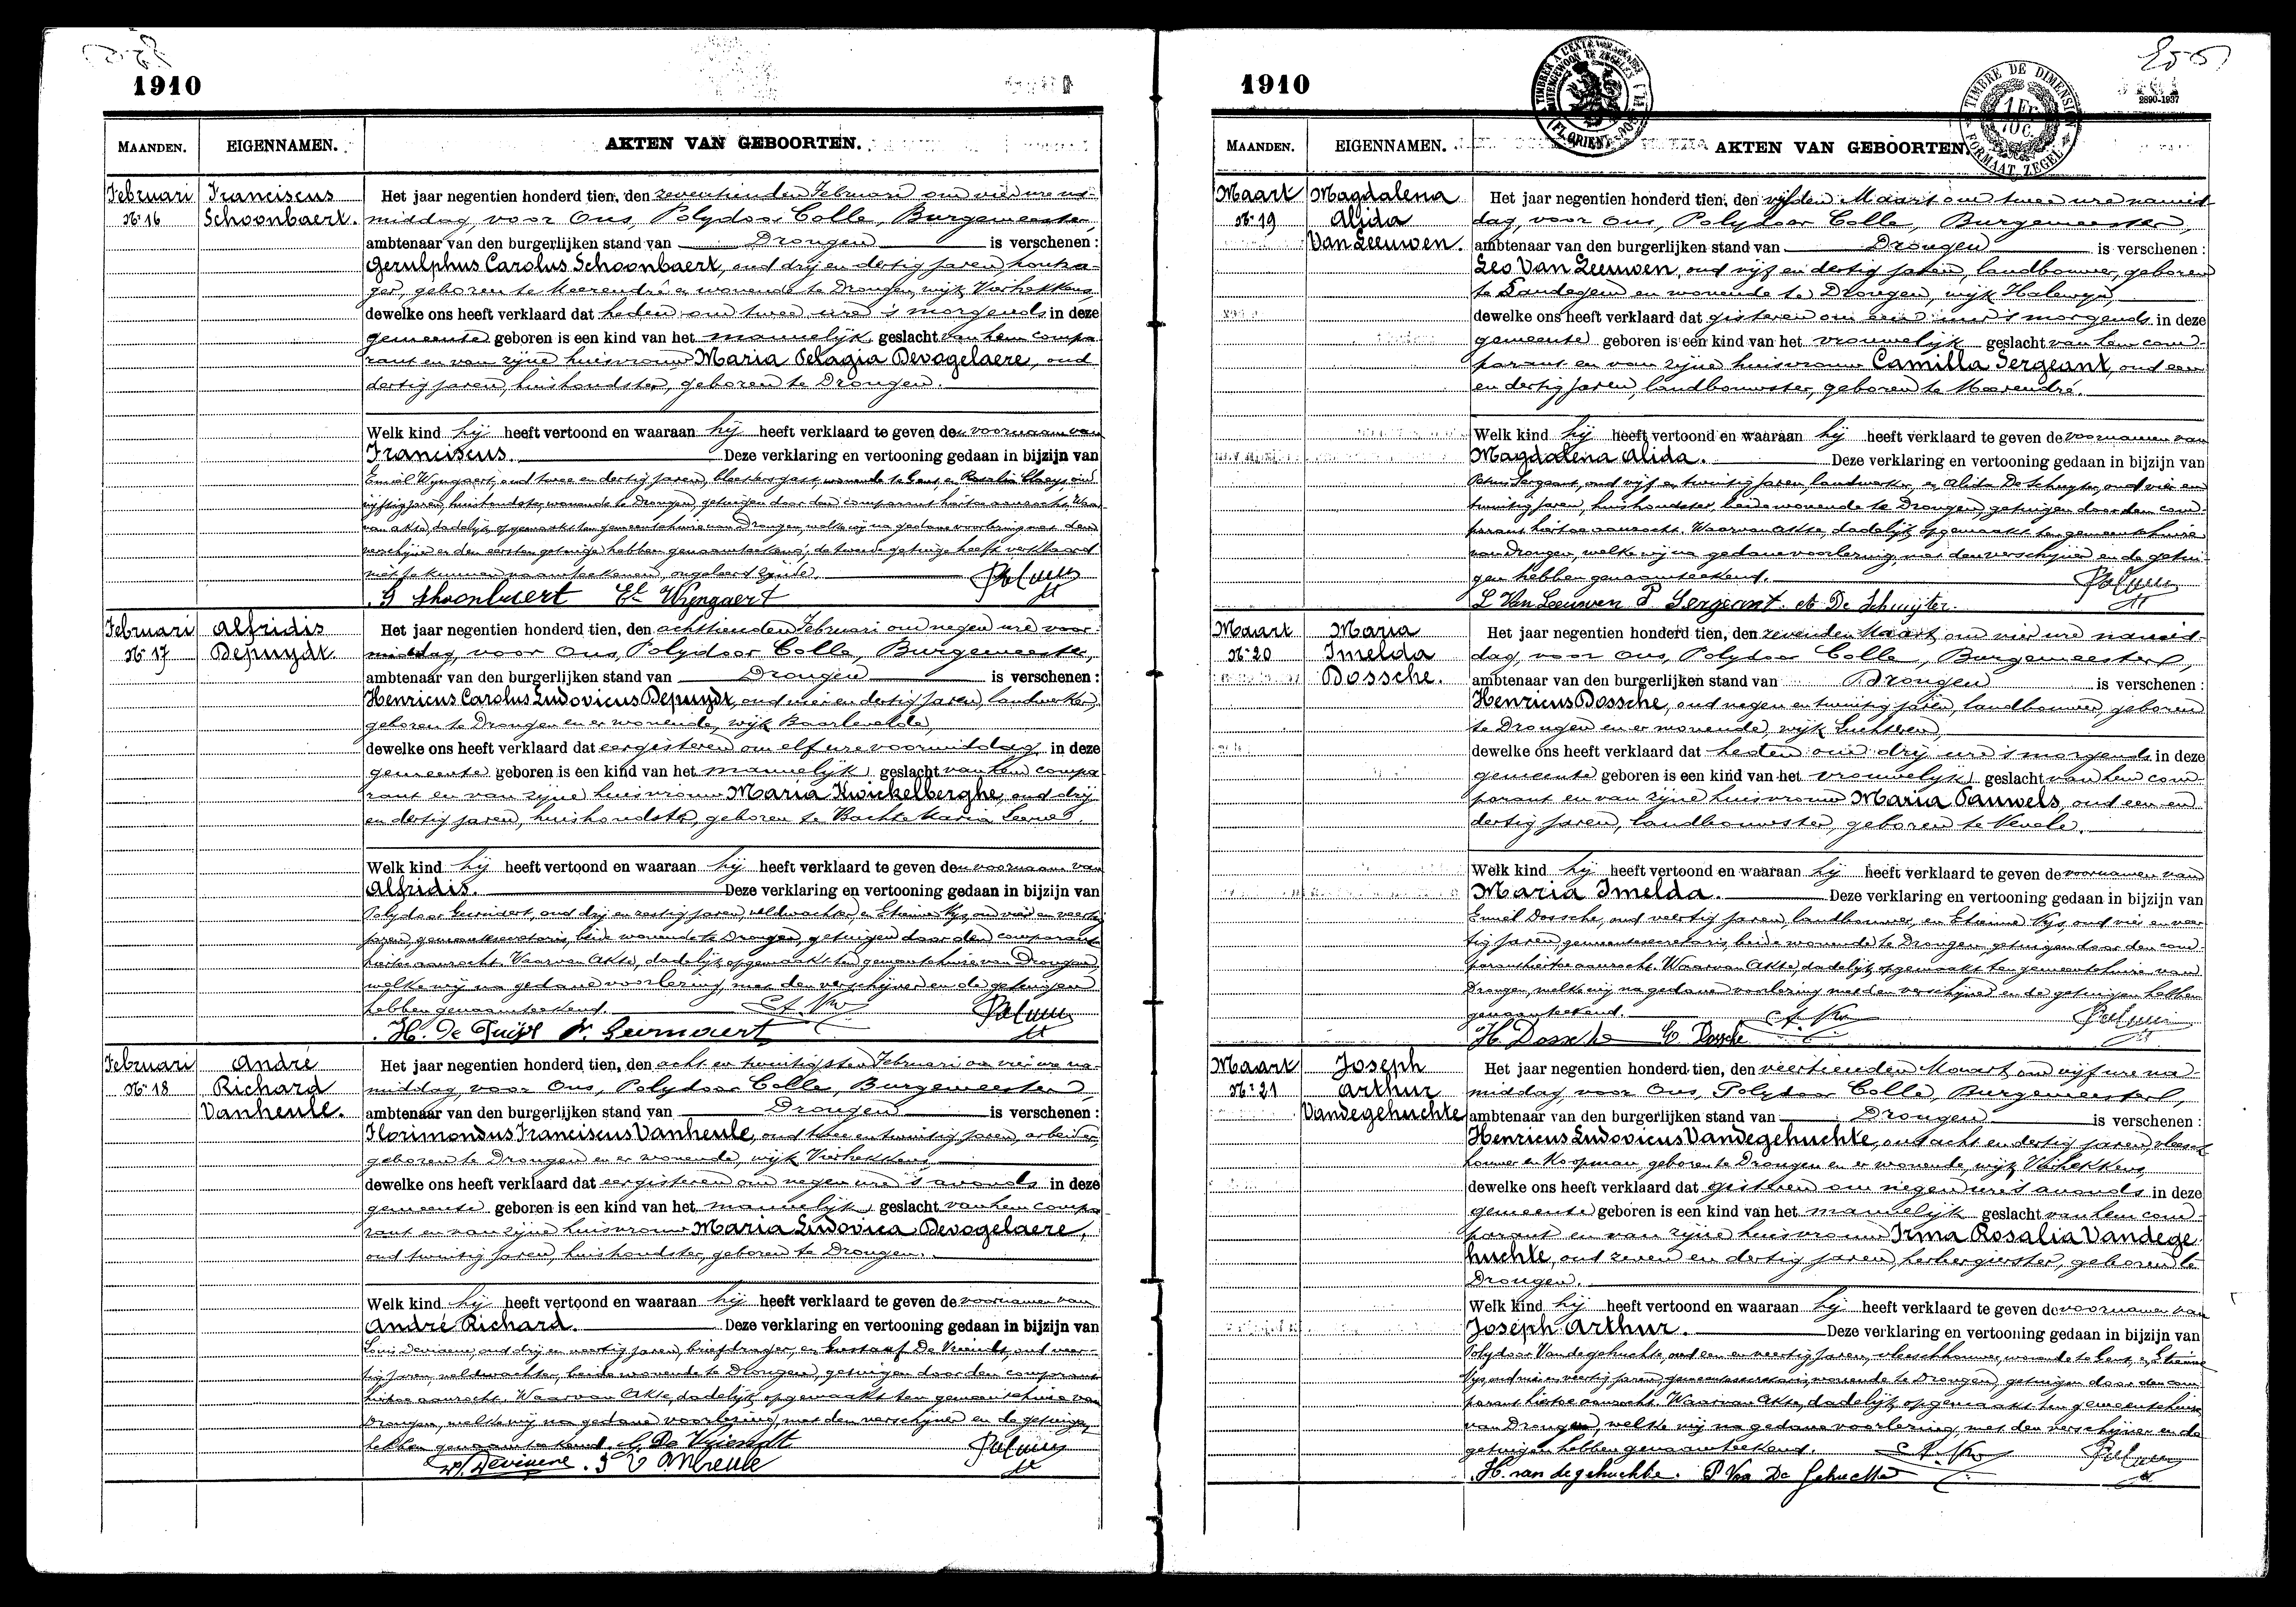 1910
MAANDEN. EIGENNAMEN. AKTEN VAN GEBOORTEN.
Februari
Nr 16
Franciscus
Schoonbaert.
Het jaar negentien honderd tien, den zeventienden Februari om vier ure na-
middag, voor Ons, Polydoor Colle, Burgemeester,
ambtenaar van den burgerlijken stand van Drongen is verschenen :
Gerulphus Carolus Schoonbaert, oud drij en dertig jaren, houtza-
ger, geboren te Meerendré en wonende te Drongen, wijk Vierhekkens,
dewelke ons heeft verklaard dat heden om twee ure 's morgends in deze
gemeente geboren is een kind van het mannelijk geslacht van hem compa
rant en van zijne huisvrouw Maria Pelagia Devogelaere, oud
dertig jaren, huishoudster, geboren te Drongen.
Welk kind hij heeft vertoond en waaraan hij heeft verklaard te geven den voornaam van
Franciscus. Deze verklaring en vertooning gedaan in bijzijn van
Emiel Wyngaert, oud twee en dertig jaren, wonende te Gent, en Rosalia Claeys, oud
vijftig jaren, huishoudster, wonende te Drongen, getuigen door den comparant hiertoe aanzocht. Waar
van akte, dadelijk opgemaakt ten gemeentehuize van Drongen, welke wij na gedane voorlezing met den
verschijner en den eersten getuige hebben genaamteekend; de tweede getuige heeft verklaard
niet te kunnen naamteekenen, ongeleerd zijnde.
G Schoonbaert Et Wijngaert
Februari
Nr 17
Alfridis
Depuydt.
Het jaar negentien honderd tien, den achttienden Februari om negen ure voor-
middag, voor Ons, Polydoor Colle, Burgemeester,
ambtenaar van den burgerlijken stand van Drongen is verschenen :
Henricus Carolus Ludovicus Depuydt, oud vier en dertig jaren, landwerker,
geboren te Drongen en er wonende, wijk Baarlevelde,
dewelke ons heeft verklaard dat eergisteren om elf ure voormiddag in deze
gemeente geboren is een kind van het mannelijk geslacht van hem compa
rant en van zijne huisvrouw Maria Kwickelberghe, oud drij
en dertig jaren, huishoudster, geboren te Bachte Maria Leerne.
Welk kind hij heeft vertoond en waaraan hij heeft verklaard te geven den voornaam van
Alfridis. Deze verklaring en vertooning gedaan in bijzijn van
Polydoor Geirnaert, oud drij en zestig jaren, veldwachter, en Etienne Nys, oud vier en veertig
jaren, gemeentesecretaris, beide wonende te Drongen, getuigen door den comparant
hiertoe aanzocht. Waarvan Akte, dadelijk opgemaakt ten gemeentehuize van Drongen,
welke wij na gedane voorlezing, met den verschijner en de getuigen
hebben genaamteekend.
H. De Puijt P. Geirnaert
Februari
Nr 18
André
Richard
Vanheule.
Het jaar negentien honderd tien, den acht en twintigsten Februari om vier ure na-
middag, voor Ons, Polydoor Colle, Burgemeester,
ambtenaar van den burgerlijken stand van Drongen is verschenen :
Florimondus Franciscus Vanheule, oud twee en twintig jaren, arbeider,
geboren te Drongen en er wonende, wijk Vierhekkens
dewelke ons heeft verklaard dat eergisteren om negen ure 's avonds in deze
gemeente geboren is een kind van het mannelijk geslacht van hem compa
rant en van zijne huisvrouw Maria Ludovica Devogelaere,
oud twintig jaren, huishoudster, geboren te Drongen.
Welk kind hij heeft vertoond en waaraan hij heeft verklaard te geven de voornamen van
André Richard. Deze verklaring en vertooning gedaan in bijzijn van
Louis Deviaene, oud drij en veertig jaren, briefdrager, en Gustaaf De Vriendt, oud veer-
tig jaren, veldwachter, beide wonende te Drongen, getuigen door den comparant
hiertoe aanzocht. Waarvan Akte, dadelijk opgemaakt ten gemeentehuize van
Drongen, welke wij na gedane voorlezing, met den verschijner en de getuigen
hebben genaamteekend. G. De Vriendt
L. Deviaene. F Vanheule
1910
TIMBRE DE DIMENSION
1 FR
10 C.
FORMAAT ZEGEL
2890-1937
MAANDEN. EIGENNAMEN. AKTEN VAN GEBOORTEN.
Maart
Nr 19
Magdalena
Alida
Van Leeuwen.
Het jaar negentien honderd tien, den vijfden Maart om twee ure namid-
dag, voor Ons, Polydoor Colle, Burgemeester,
ambtenaar van den burgerlijken stand van Drongen is verschenen :
Leo Van Leeuwen, oud vijf en dertig jaren, landbouwer, geboren
te Landegem en wonende te Drongen, wijk Halewyn,
dewelke ons heeft verklaard dat gisteren om een ure 's morgends in deze
gemeente geboren is een kind van het vrouwelijk geslacht van hem com-
parant en van zijne huisvrouw Camilla Sergeant, oud een
en dertig jaren, landbouwster, geboren te Meerendré.
Welk kind hij heeft vertoond en waaraan hij heeft verklaard te geven de voornamen van
Magdalena Alida. Deze verklaring en vertooning gedaan in bijzijn van
Petrus Sergeant, oud vijf en twintig jaren, landwerker, en Alida De Schuyter, oud vier en
twintig jaren, huishoudster, beide wonende te Drongen, getuigen door den com-
parant hiertoe aanzocht. Waarvan Akte, dadelijk opgemaakt ten gemeentehuize
van Drongen, welke wij na gedane voorlezing, met den verschijner en de getui-
gen hebben genaamteekend.
L Van Leeuwen P. Sergeant. A De Schuijter.
Maart
Nr 20
Maria
Imelda
Dossche.
Het jaar negentien honderd tien, den zevenden Maart om vier ure namid-
dag, voor Ons, Polydoor Colle, Burgemeester,
ambtenaar van den burgerlijken stand van Drongen is verschenen :
Henricus Dossche, oud negen en twintig jaren, landbouwer, geboren
te Drongen en er wonende, wijk Luchteren,
dewelke ons heeft verklaard dat heden om drij ure 's morgends in deze
gemeente geboren is een kind van het vrouwelijk geslacht van hem com-
parant en van zijne huisvrouw Maria Pauwels, oud een en
dertig jaren, landbouwster, geboren te Nevele.
Welk kind hij heeft vertoond en waaraan hij heeft verklaard te geven de voornamen van
Maria Imelda. Deze verklaring en vertooning gedaan in bijzijn van
Emiel Dossche, oud veertig jaren, landbouwer, en Etienne Nys, oud vier en veer-
tig jaren, gemeentesecretaris, beide wonende te Drongen, getuigen door den com-
parant hiertoe aanzocht. Waarvan Akte, dadelijk opgemaakt ten gemeentehuize van
Drongen, welke wij na gedane voorlezing met den verschijner en de getuigen hebben
genaamteekend.
H Dossche E Dossche
Maart
Nr 21
Joseph
Arthur
Vandegehuchte
Het jaar negentien honderd tien, den veertienden Maart om vijf ure na-
middag, voor Ons, Polydoor Colle, Burgemeester,
ambtenaar van den burgerlijken stand van Drongen is verschenen :
Henricus Ludovicus Vandegehuchte, oud acht en dertig jaren, vleesch
houwer en Koopman, geboren te Drongen en er wonende, wijk Vierhekkens,
dewelke ons heeft verklaard dat gisteren om negen ure 's avonds in deze
gemeente geboren is een kind van het mannelijk geslacht van hem com-
parant en van zijne huisvrouw Irma Rosalia Vandege
huchte, oud zeven en dertig jaren, herbergierster, geboren te
Drongen.
Welk kind hij heeft vertoond en waaraan hij heeft verklaard te geven de voornamen van
Joseph Arthur. Deze verklaring en vertooning gedaan in bijzijn van
Polydoor Vandegehuchte, oud een en veertig jaren, vleeschhouwer, wonende te Gent, en Etienne
Nys, oud vier en veertig jaren, gemeentesecretaris, wonende te Drongen, getuigen door den com-
parant hiertoe aanzocht. Waarvan Akte, dadelijk opgemaakt ten gemeentehuize
van Drongen, welke wij na gedane voorlezing, met den verschijner en de
getuigen hebben genaamteekend.
H. van de gehuchte. P Van De Gehuchte